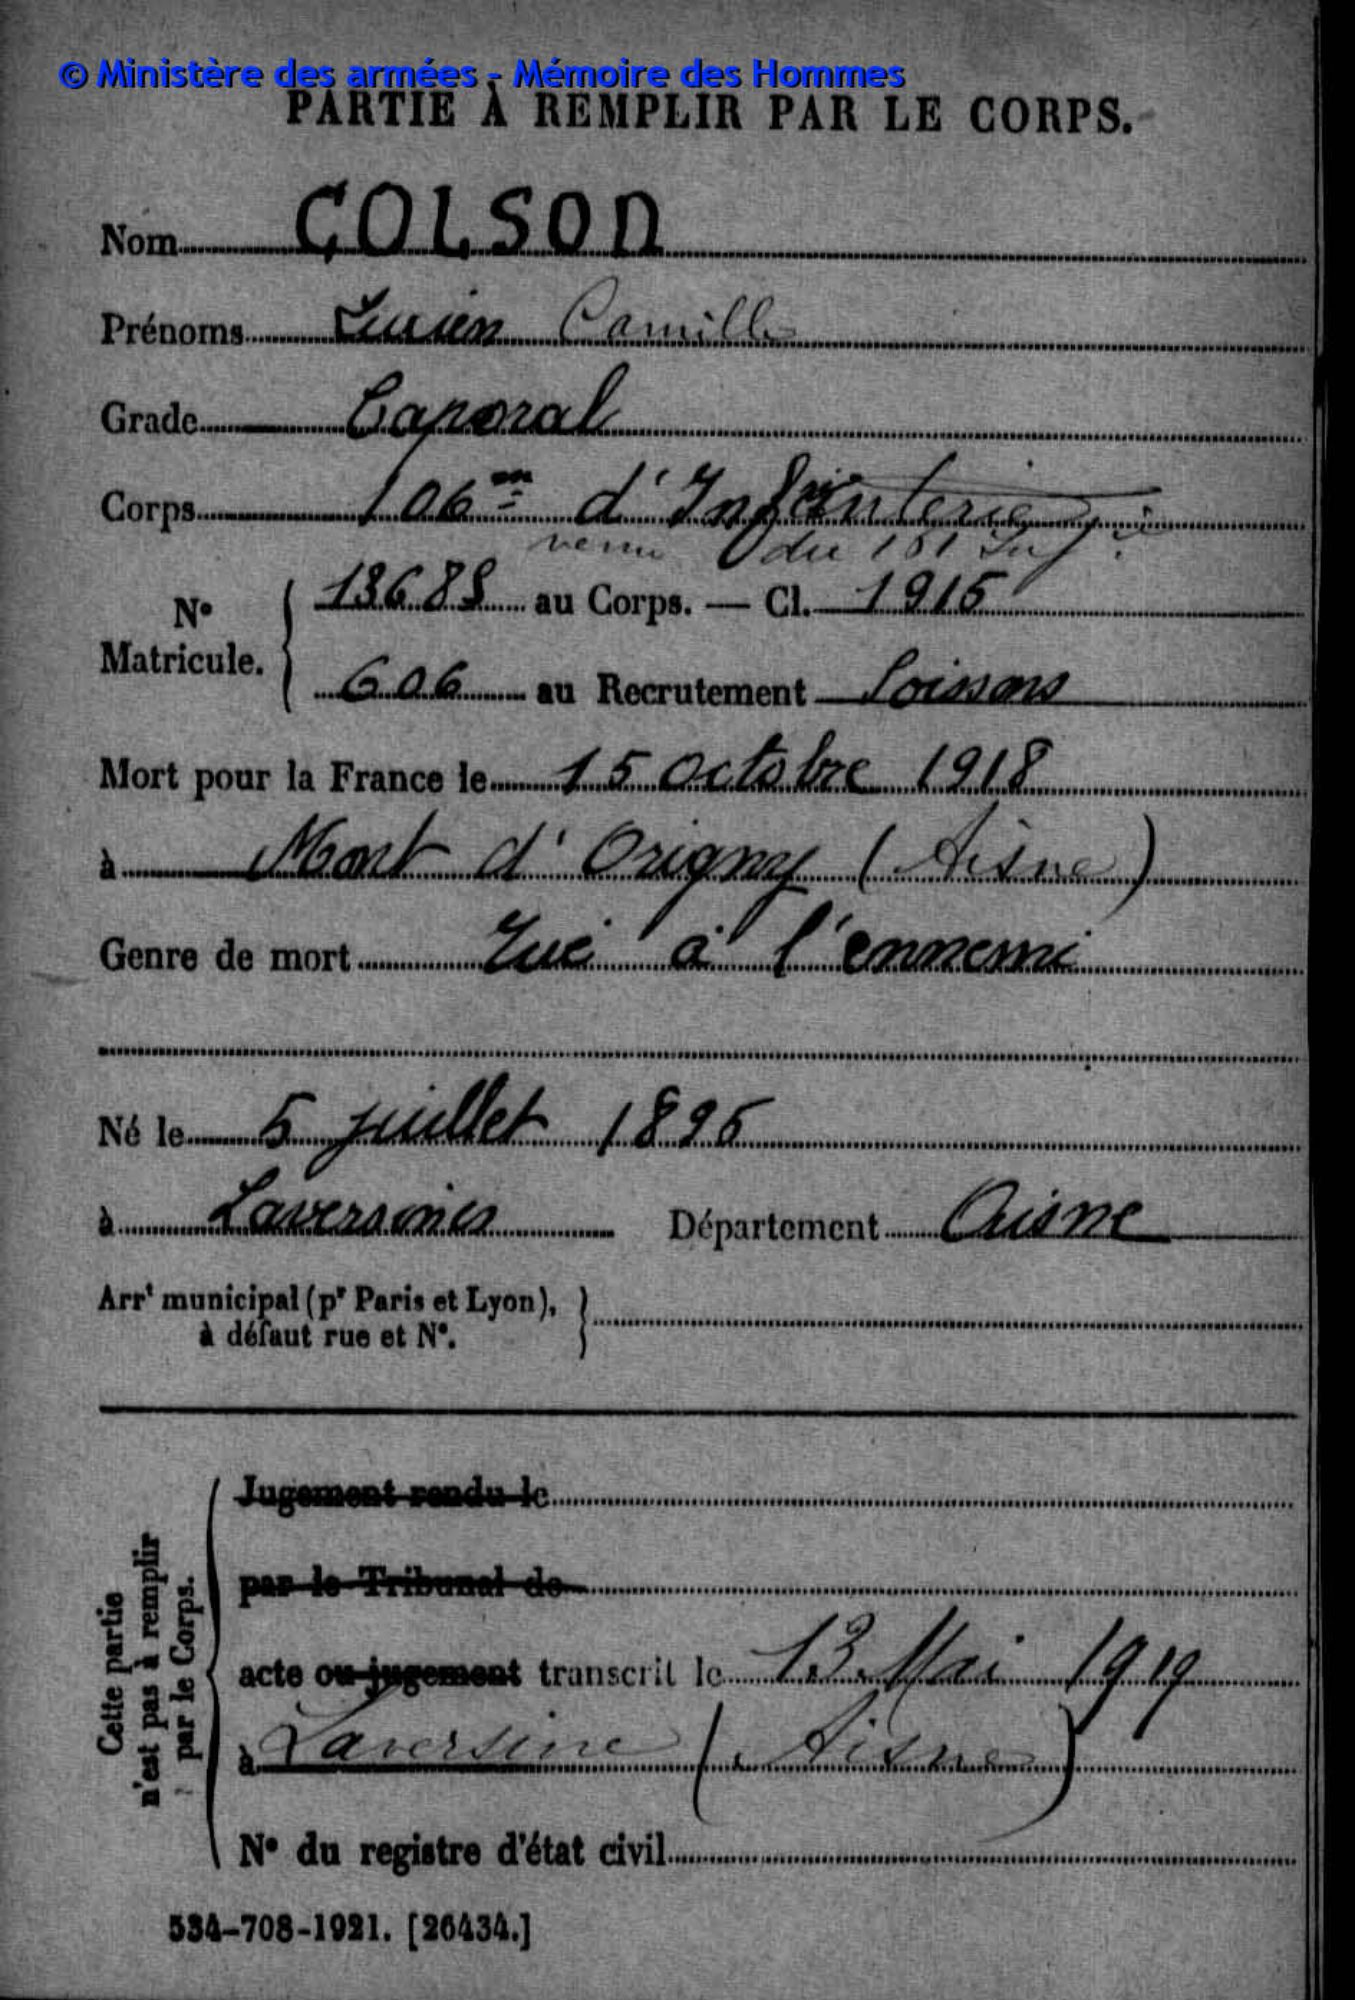 © Ministère des armées - Mémoire des Hommes
PARTIE À REMPLIR PAR LE CORPS.
Nom COLSON
Prénoms Lucien Camille
Grade Caporal
Corps 106me d'Infanterie
venu du 161 Inf ie
No Matricule. 13688 au Corps. — Cl. 1915
606 au Recrutement Soissons
Mort pour la France le 15 octobre 1918
à Mont d'Origny (Aisne)
Genre de mort Tué à l'ennemi
Né le 5 juillet 1895
à Laversines Département Aisne
Arrt municipal (pr Paris et Lyon),
à défaut rue et No.
Cette partie
n'est pas à remplir
par le Corps.
Jugement rendu le
par le Tribunal de
acte ou jugement transcrit le 13 Mai 1919
à Laversine (Aisne)
No du registre d'état civil
534-708-1921. [26434.]